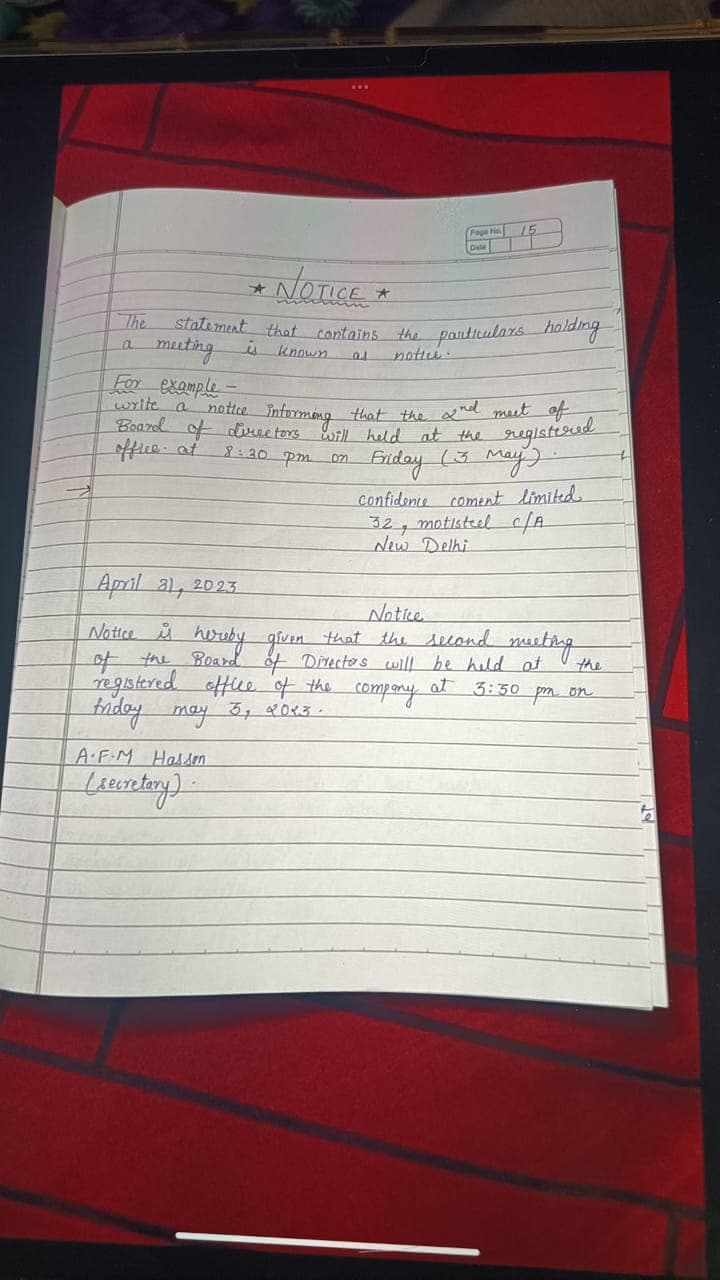 Page No. 15
Date
★ NOTICE ★
The statement that contains the particulars holding
a meeting is known as notice.
For example -
write a notice informing that the 2nd meet of
Board of directors will held at the registered
office. at 8:30 pm on Friday (3 May).
→
confidence coment limited
32, motisteel c/A
New Delhi
April 31, 2023
Notice
Notice is hereby given that the second meeting
of the Board of Directors will be held at the
registered office of the company at 3:30 pm on
friday may 3, 2023.
A.F.M Hasson
(secretary).
te